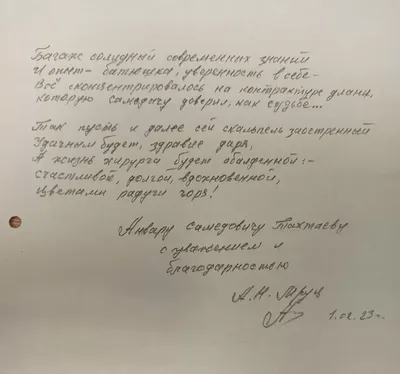 Багаж солидный современных знаний
И опыт – батюшка, уверенность в себе –
Всё сконцентрировалось на контрактуре длани,
которую самедычу доверил, как судьбе...
Так пусть и далее сей скальпель заостренный
Удачным будет, здравие даря,
А жизнь хирурга будет обалденной: –
счастливой, долгой, вдохновенной,
цветами радуги горя!
Анвару Самедовичу Тахтаеву
с уважением и
благодарностью
А.Н.
1.02.23г.